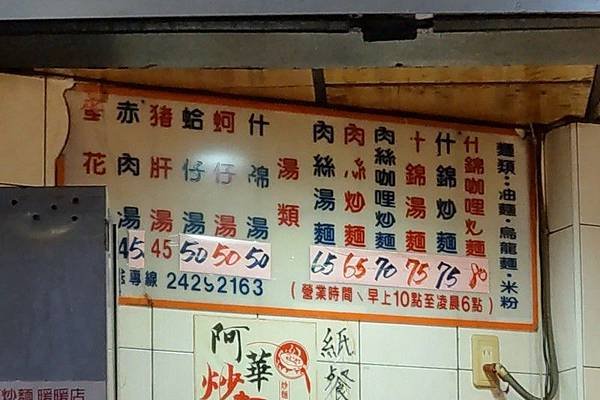 麵類：油麵·烏龍麵·米粉
什錦咖哩炒麵 80
什錦炒麵 75
什錦湯麵 75
肉絲咖哩炒麵 70
肉絲炒麵 65
肉絲湯麵 65
湯類
什錦湯 50
蚵仔湯 50
蛤仔湯 50
猪肝湯 45
赤肉湯 45
花
專線
(營業時間、早上10點至凌晨6點)
紙餐
阿華
炒麵
炒麵 暖暖店